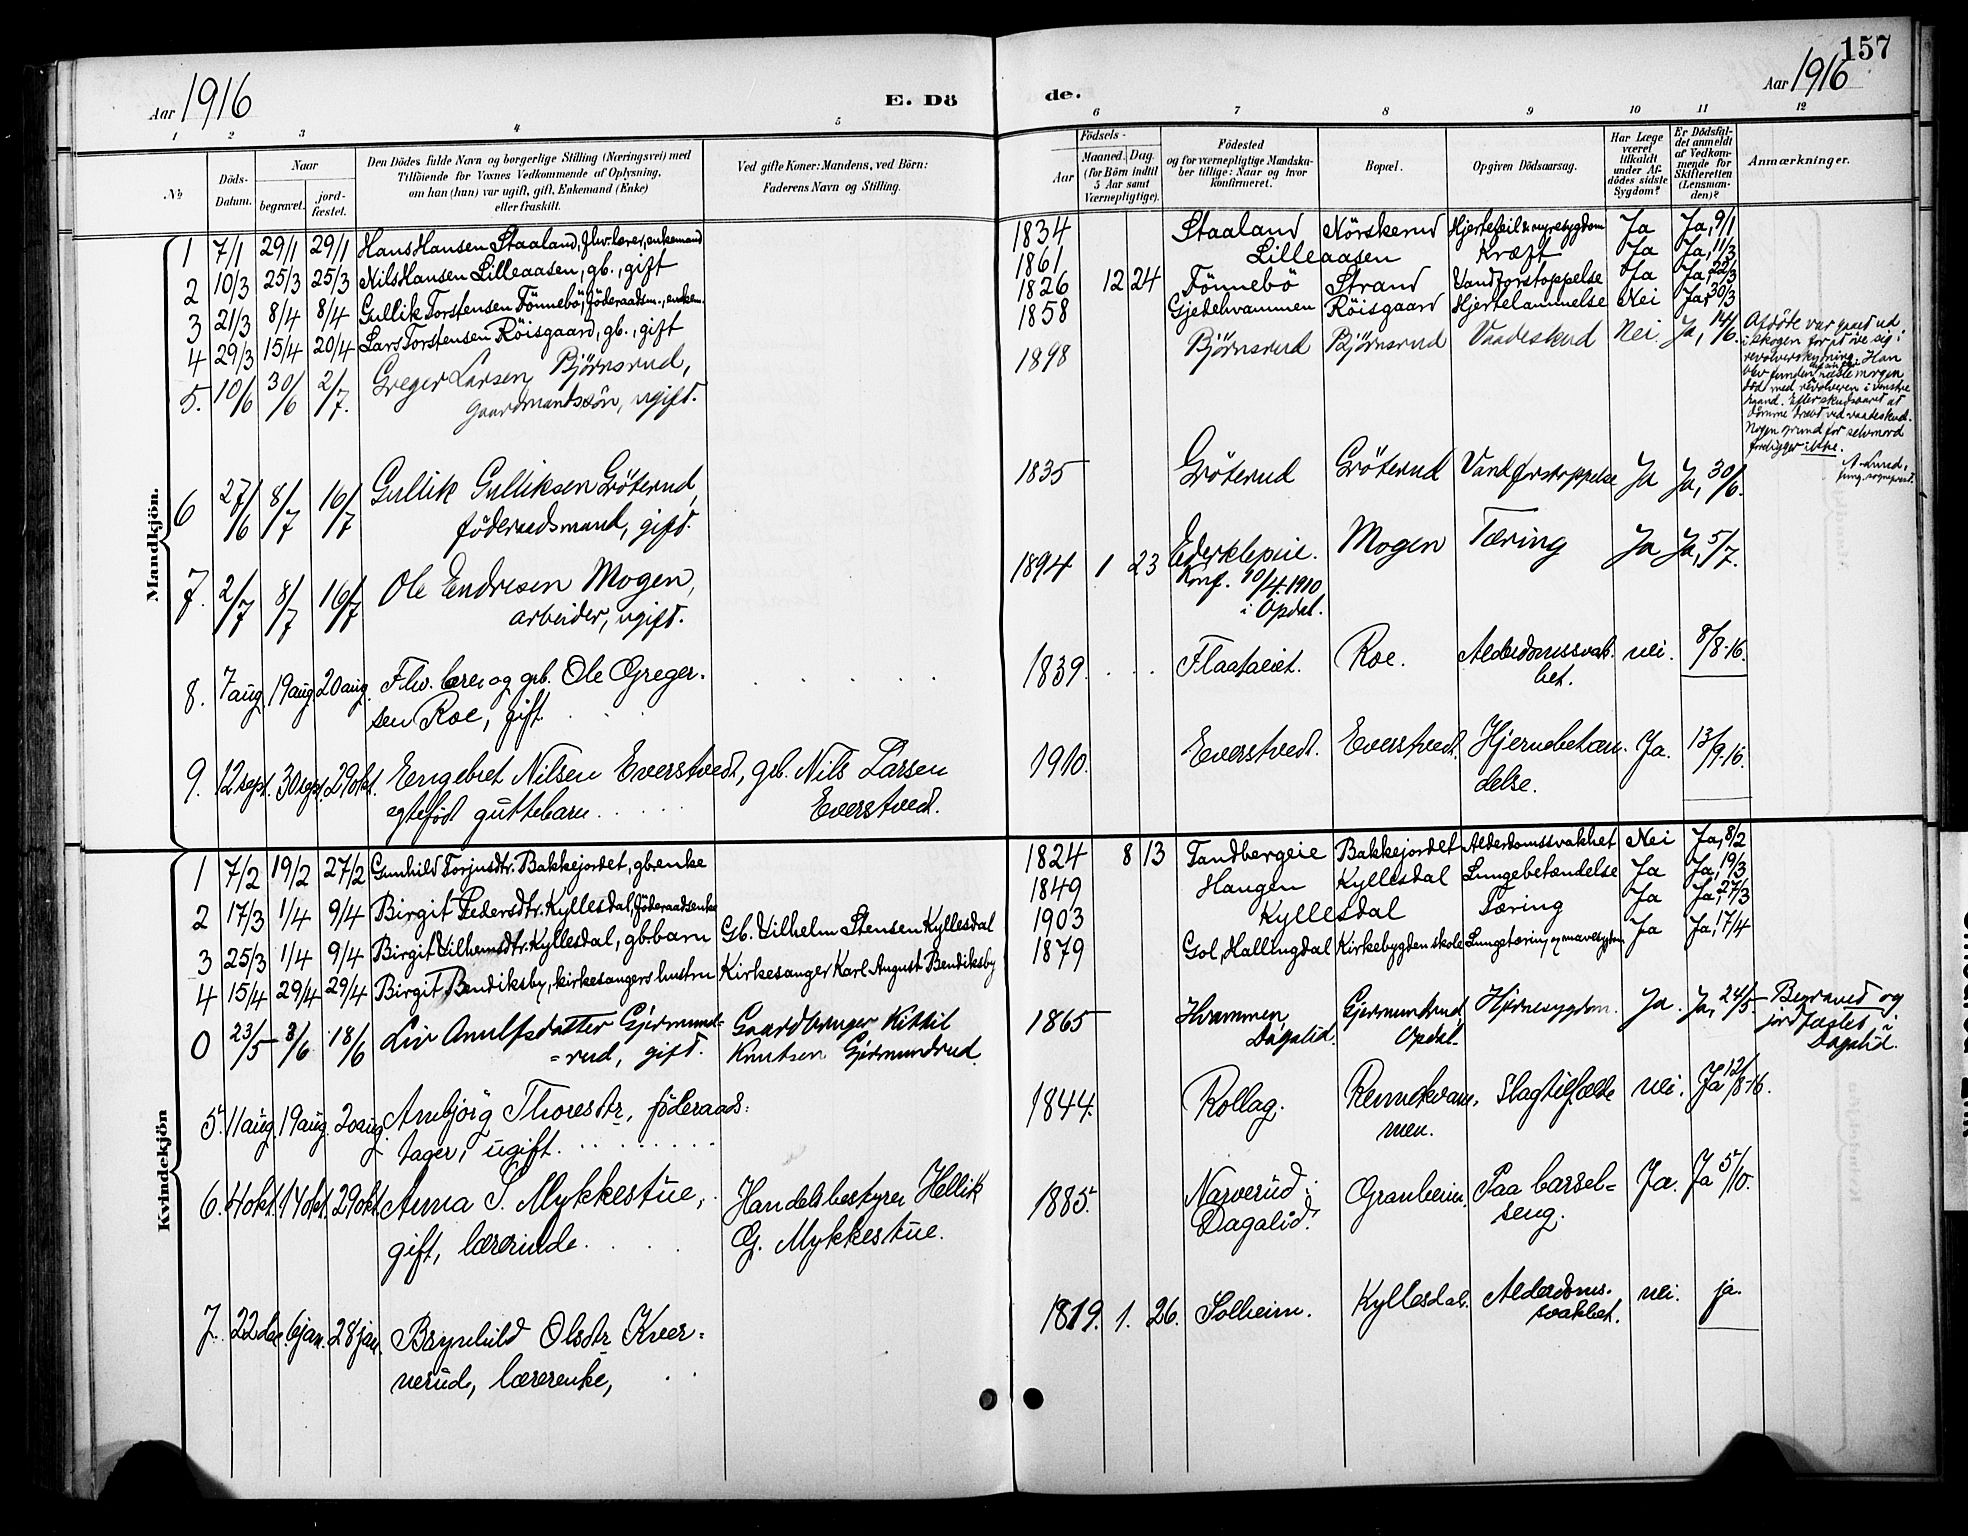 157
Aar 1916
E. Dö
de.
Aar 1916
1 2 3 4 5 6 7 8 9 10 11 12
No.
Döds-Datum.
Naar
begravet.
jord-fæstet.
Den Dödes fulde Navn og borgerlige Stilling (Næringsvei) med
Tilföiende for Voxnes Vedkommende af Oplysning,
om han (hun) var ugift, gift, Enkemand (Enke)
eller fraskilt.
Ved gifte Koner: Mandens, ved Börn:
Faderens Navn og Stilling.
Födsels-
Aar
Maaned. Dag.
(for Börn indtil
5 Aar samt
Værnepligtige).
Födested
og for værnepligtige Mandska-
ber tillige: Naar og hvor
konfirmeret.
Bopæl.
Opgiven Dödsaarsag.
Har Læge
været
tilkaldt
under Af-
dödes sidste
Sygdom?
Er Dödsfal-
det anmeldt
af Vedkom-
mende for
Skifteretten
(Lensman-
den)?
Anmærkninger.
Mandkjön.
1 7/1 29/1 29/1 Hans Hansen Staaland, flv. lærer, enkemand 1834 Staaland Nörskerud Hjertefeil & nyresygdom Ja Ja, 9/1
2 10/3 25/3 25/3 Nils Hansen Lilleaasen, gb., gift 1861 Lilleaasen Kræft Ja Ja, 11/3
3 21/3 8/4 8/4 Gullik Torstensen Fönnebö, föderaadsm., enkem. 1826 12 24 Fönnebö Strand Vandforstoppelse Ja Ja, 22/3
4 29/3 15/4 20/4 Lars Torstensen Röisgaard, gb., gift 1858 Gjedehvammen Röisgaard Hjertelammelse Nei Ja, 30/3
5. 10/6 30/6 2/7. Greger Larsen Björnsrud,
gaardmandssön, ugift.
1898 Björnsrud Björnsrud Vaadeskud Nei. Ja, 14/6.
Afdöde var gaaet ud
i skogen for at öve sig i
revolverskydning. Han
blev funden næste morgen
död med revolveren i venstre
haand. Efter skudsaaret at
dömme dræbt ved vaadeskud.
Nogen grund for selvmord
foreligger ikke.
A. Lund,
fung. sogneprest.
6 27/6 8/7 16/7 Gullik Gulliksen Gröterud,
föderaadsmand, gift.
1835 Gröterud Gröterud Vandforstoppelse Ja Ja, 30/6.
7. 2/7 8/7 16/7 Ole Endresen Mogen,
arbeider, ugift.
1894 1 23 Ederklepeie.
Konf. 10/4.1910
i Opdal.
Mogen Tæring Ja Ja, 5/7.
8. 7 aug. 19 aug. 20 aug. Flv. lærer og grb. Ole Greger-
sen Roe, gift.
1839. Flaataeiet. Roe. Alderdomssvak-
het. nei. 8/8-16.
9. 12 sept. 30 sept. 29 okt. Engebret Nilsen Everstvedt, grb. Nils Larsen
egtefödt guttebarn. Everstved.
1910. Everstvedt. Everstvedt. Hjernebetæn-
delse. Ja. 13/9-16.
Kvindekjön
1 7/2 19/2 27/2 Gunhild Torjusdtr. Bakkejordet, gb.enke 1824 8 13 Tandbergeie Bakkejordet Alderdomssvakhet Nei Ja, 8/2
2 17/3 1/4 9/4 Birgit Pedersdtr. Kyllesdal, föderaadsenke 1849 Haugen Kyllesdal Lungebetændelse Ja Ja, 19/3
3 25/3 1/4 9/4 Birgit Vilhemsdtr. Kyllesdal, gb.barn Gb. Vilhelm Stensen Kyllesdal 1903 Kyllesdal Tæring Ja Ja, 27/3
4 15/4 29/4 29/4 Birgit Bendiksby, kirkesangers hustru Kirkesanger Karl August Bendiksby 1879 Gol, Hallingdal Kirkebygden skole Lungetæring og mavesygdom Ja Ja, 17/4
0 23/5 3/6 18/6 Liv Arnulfsdatter Gjermund-
=rud, gift.
Gaardbruger Kittil
Knutsen Gjermundrud.
1865 Hvammen,
Dagalid.
Gjermundrud,
Opdal.
Hjernesygdom. Ja. Ja, 24/5.
Begraved og
jordfæstet i
Dagalid.
5. 11 aug. 19 aug. 20 aug. Annbjörg Thoresdtr, föderaads-
tager, ugift.
1844. Rollag. Rennehvam-
men. Slagtilfælde nei. Ja 12/8-16.
6. 4 okt. 14 okt. 29 okt. Anna S. Mykkestue,
gift, lærerinde.
Handelsbestyrer Hellik
G. Mykkestue.
1885. Narverud,
Dagalid. Granheim. Paa barsel-
seng. Ja. Ja 5/10.
7. 22 dec. 6 jan. 28 jan. Brynhild Olsdtr Kver-
nerud, lærerenke,
1819. 1. 26. Solheim. Kyllesdal. Alderdoms-
svakhet. nei. ja.